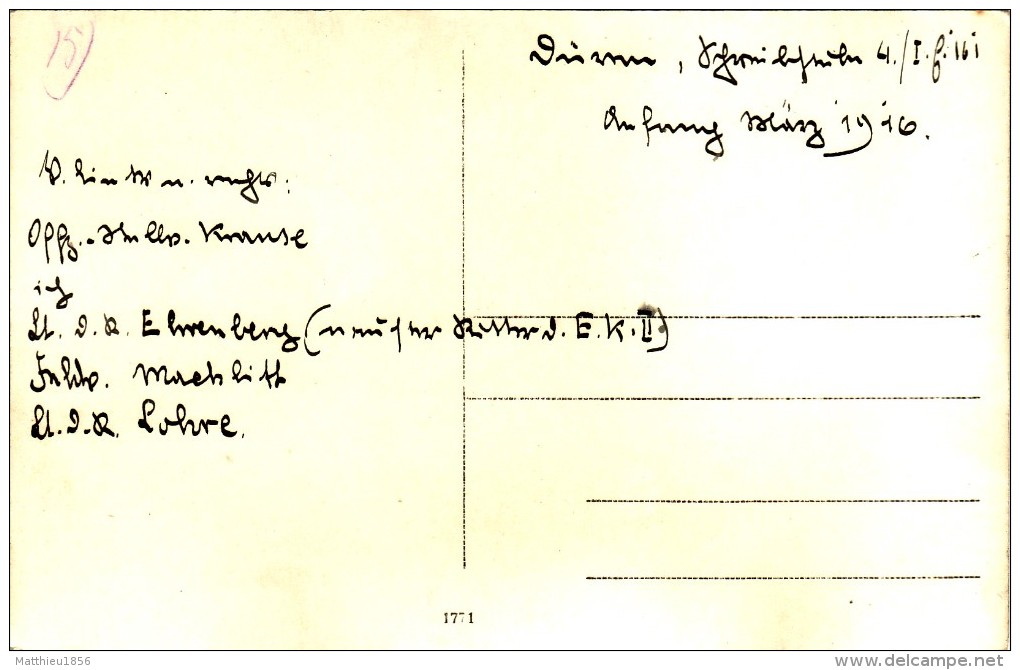 15)
Düren, Schreibstube 4./I. E. 161
Anfang März 1916.
V. links n. rechts:
Offz.-Stellv. Krause
ich
Lt. d. R. Ehrenberg (neuster Ritter d. E. K. II)
Feldw. Machlitt
Lt. d. R. Lohre.
1771
Matthieu1856
delcampe.net